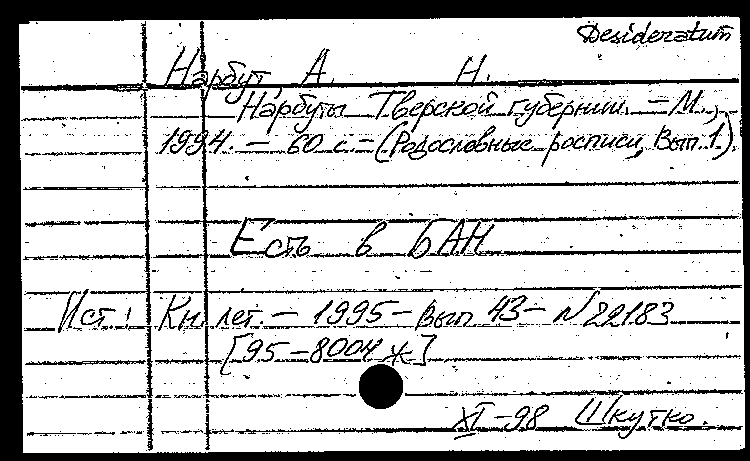 Desideratum
Нарбут А. Н.
Нарбуты Тверской губернии. – М.,
1994. – 60 с – (Родословные росписи, Вып. 1.)
Есть в БАН
Ист.: Кн. лет. – 1995 – Вып 43 – N 22183
[95-8004ж]
XI-98 Шкутко.